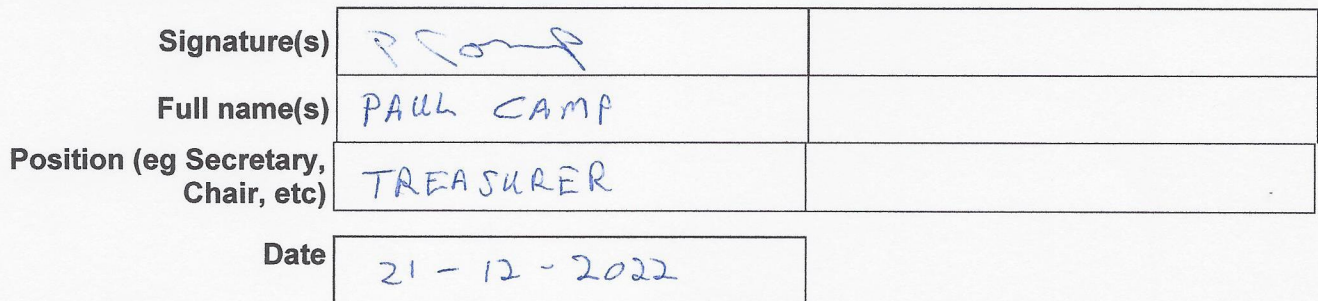 Signature(s) P Camp
Full name(s) PAUL CAMP
Position (eg Secretary,
Chair, etc) TREASURER
Date 21-12-2022